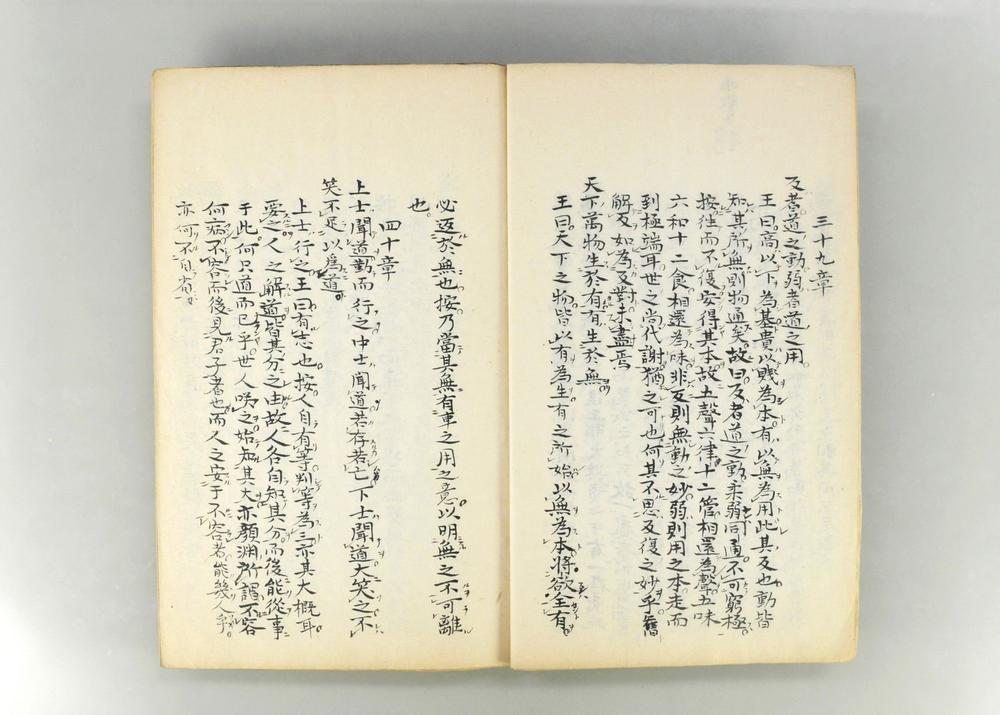 三十九章
反者道之動弱者道之用
王曰高以下為基貴以賤為本有以無為用此其反也動皆
知其所無則物通矣故曰反者道之動柔弱同通不可窮極
按往而不復安得其本故五聲六律十二管相還為聲五味
六和十二食相還為味非反則無動之妙弱則用之本走而
到極端耳世之尚代謝猶之可也何其不思反復之妙乎舊
解反如為反對未盡焉
天下萬物生於有有生於無
王曰天下之物皆以有為生有之所始以無為本將欲全有
必返於無也按乃當其無有車之用之意以明無之不可離
也
四十章
上士聞道勤而行之中士聞道若存若亡下士聞道大笑之不
笑不足以為道
上士行之王曰有志也按人自有等判等為三亦其大概耳
愛之人之解道皆其分之由故人各自知其分而後能從事
于此何只道而已乎世人咲之始知其大亦顏淵所謂不容
何病不容而後見君子者也而人之安于不容者能幾人乎
亦何不自省